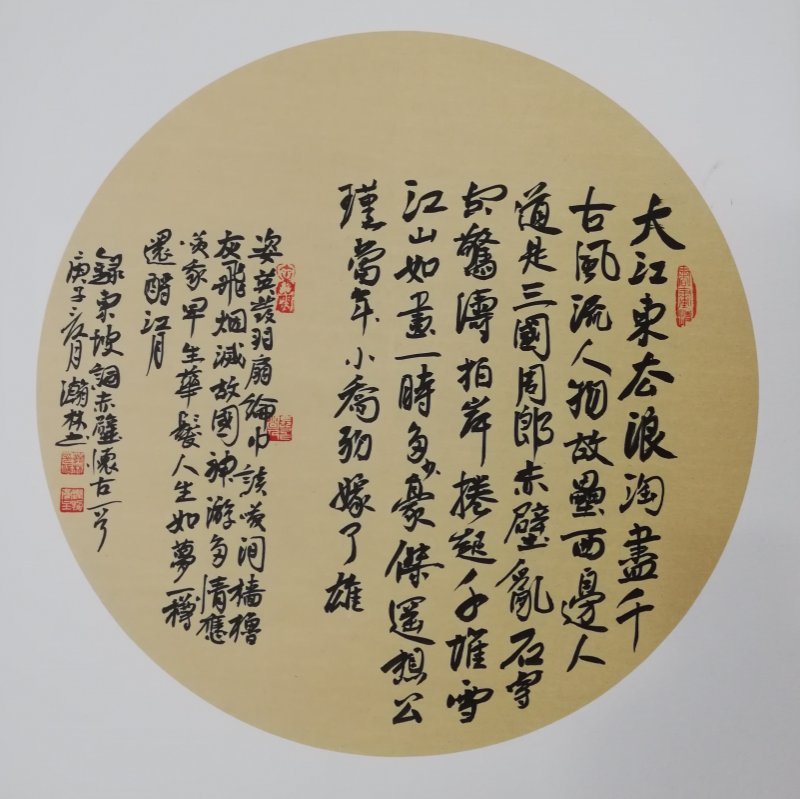 大江東去浪淘盡千
古風流人物故壘西邊人
道是三國周郎赤壁亂石穿
空驚濤拍岸捲起千堆雪
江山如畫一時多少豪傑遥想公
瑾當年小喬初嫁了雄
姿英發羽扇綸巾談笑间檣櫓
灰飛烟滅故國神游多情應
笑我早生華髮人生如夢一樽
還酹江月
錄東坡詞赤壁懷古一首
庚子夏月瀚林書